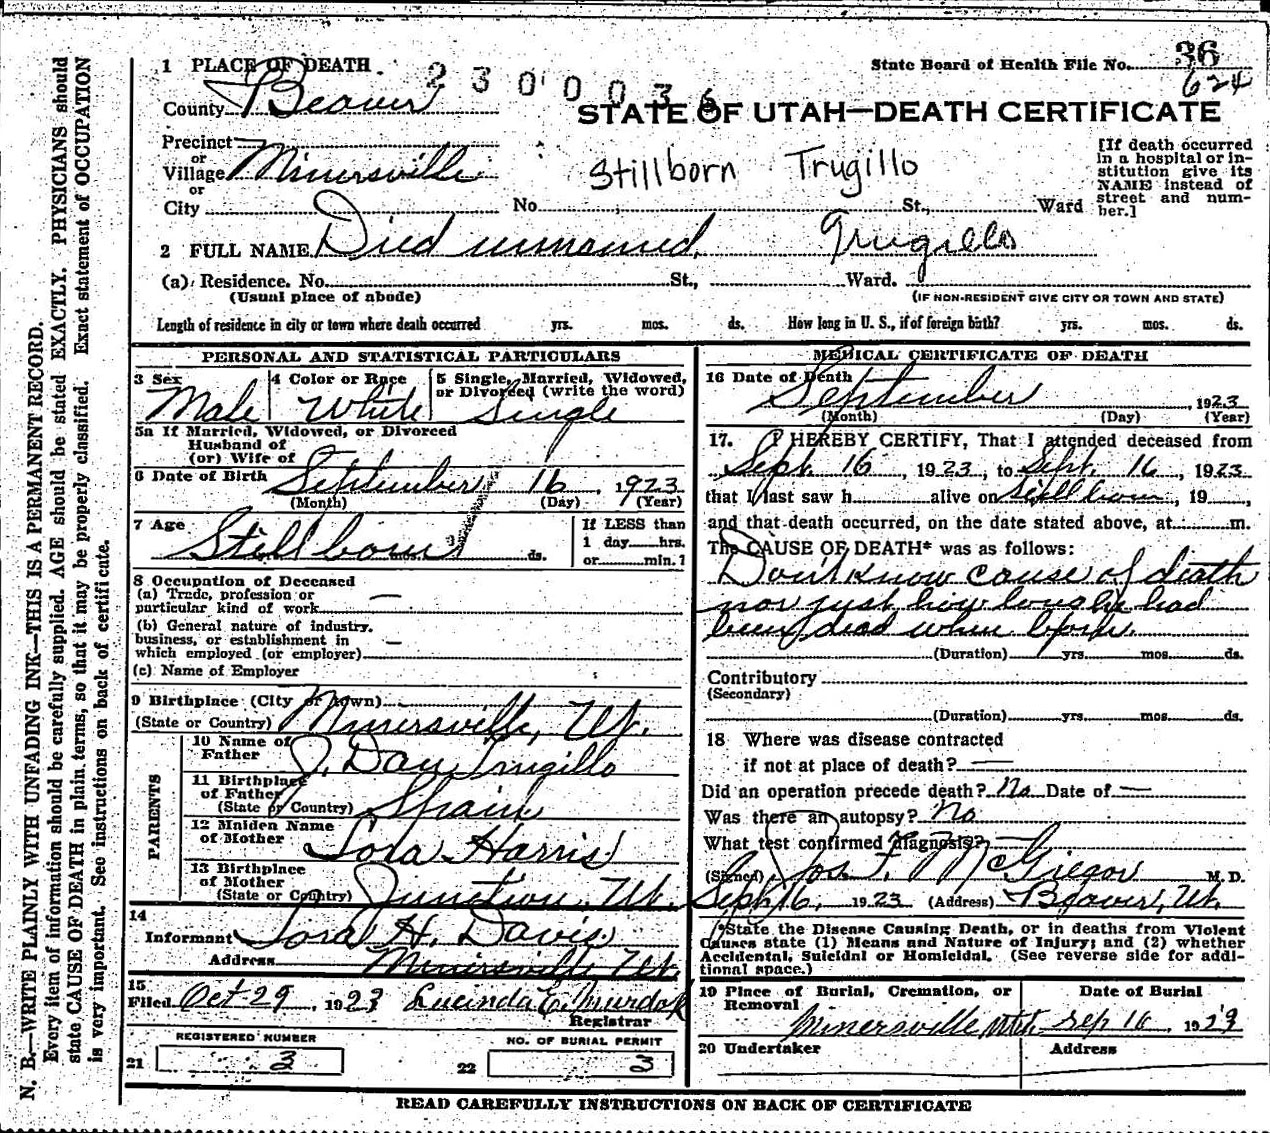 36
State Board of Health File No.
624
2300036
STATE OF UTAH—DEATH CERTIFICATE
1 PLACE OF DEATH
County Beaver
Precinct
or
Village Minersville
or
City No. St., Ward
Stillborn Trugillo
[If death occurred
in a hospital or in-
stitution give its
NAME instead of
street and num-
ber.]
2 FULL NAME Died unnamed, Trugillo
(a) Residence. No. St., Ward.
(Usual place of abode) (IF NON-RESIDENT GIVE CITY OR TOWN AND STATE)
Length of residence in city or town where death occurred yrs. mos. ds. How long in U. S., if of foreign birth? yrs. mos. ds.
PERSONAL AND STATISTICAL PARTICULARS
3 Sex 4 Color or Race 5 Single, Married, Widowed,
or Divorced (write the word)
Male White Single
5a If Married, Widowed, or Divorced
Husband of
(or) Wife of
6 Date of Birth September 16, 1923
(Month) (Day) (Year)
7 Age Stillborn ds.
If LESS than
1 day hrs.
or min.
8 Occupation of Deceased
(a) Trade, profession or
particular kind of work —
(b) General nature of industry,
business, or establishment in
which employed (or employer) —
(c) Name of Employer
9 Birthplace (City or town)
(State or Country) Minersville, Ut.
PARENTS
10 Name of
Father J. Dau Trugillo
11 Birthplace
of Father
(State or Country) Spain
12 Maiden Name
of Mother Lora Harris
13 Birthplace
of Mother
(State or Country) Junction, Ut.
14
Informant Lora H. Davis
Address Minersville Ut.
15
Filed Oct-29, 1923 Lucinda E. Murdock
Registrar
REGISTERED NUMBER NO. OF BURIAL PERMIT
21 3 22 3
MEDICAL CERTIFICATE OF DEATH
16 Date of Death
September, 1923
(Month) (Day) (Year)
17. I HEREBY CERTIFY, That I attended deceased from
Sept. 16, 1923, to Sept. 16, 1923
that I last saw h alive on Stillborn, 19 ,
and that death occurred, on the date stated above, at m.
The CAUSE OF DEATH* was as follows:
Don't know cause of death
nor just how long he had
been dead when before.
(Duration) yrs. mos. ds.
Contributory
(Secondary)
(Duration) yrs. mos. ds.
18 Where was disease contracted
if not at place of death? —
Did an operation precede death? No Date of —
Was there an autopsy? No
What test confirmed diagnosis?
(Signed) Jos. F. McGregor M. D.
Sept 16, 1923 (Address) Beaver, Ut.
*State the Disease Causing Death, or in deaths from Violent
Causes state (1) Means and Nature of Injury; and (2) whether
Accidental, Suicidal or Homicidal. (See reverse side for addi-
tional space.)
19 Place of Burial, Cremation, or
Removal
Date of Burial
Minersville Utah Sep 16, 1923
20 Undertaker Address
READ CAREFULLY INSTRUCTIONS ON BACK OF CERTIFICATE
N. B.—WRITE PLAINLY WITH UNFADING INK—THIS IS A PERMANENT RECORD.
Every item of information should be carefully supplied. AGE should be stated EXACTLY. PHYSICIANS should
state CAUSE OF DEATH in plain terms, so that it may be properly classified. Exact statement of OCCUPATION
is very important. See instructions on back of certificate.